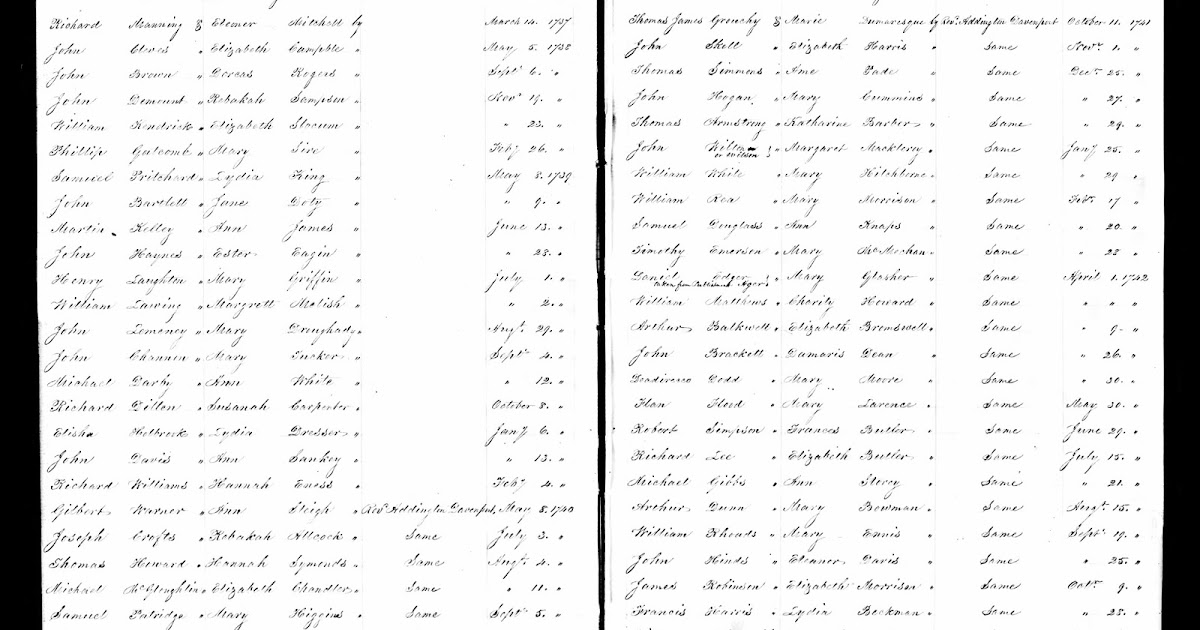 Richard Manning & Elemer Mitchell by March 14. 1737
John Cleves " Elizabeth Campble " May 5. 1738
John Brown " Dorcas Rogers " Sept 6. "
John Demount " Rebakah Sampson " Nov 19. "
William Kendrick " Elizabeth Slocum " " 23. "
Phillip Gutcomb " Mary Sire " Feby 26. "
Samuel Pritchard " Lydia King " May 8. 1739
John Bartlett " Jane Doty " " 9. "
Martin Kelley " Ann James " June 13. "
John Haynes " Ester Eagin " " 23. "
Henry Laughton " Mary Griffin " July 1. "
William Lawing " Margrett Molish " " 2. "
John Lemoney " Mary Droughady " Augt. 29. "
John Channen " Mary Tucker " Sept 4. "
Michael Darby " Ann White " " 12. "
Richard Dillon " Susanah Carpenter " October 8. "
Elisha Holbrook " Lydia Dresser " Jany 6. "
John Davis " Ann Sankey " " 13. "
Richard Williams " Hannah Eness " Feby 4. "
Gilbert Warner " Ann Sleigh " Revd Addington Davenport, May 8. 1740
Joseph Crofts " Rebakah Allcock " Same July 3. "
Thomas Howard " Hannah Symonds " Same Augt. 4. "
Michael McGloughlin " Elizabeth Chandler " Same " 11. "
Samuel Patridge " Mary Higgins " Same Sept 5. "
Thomas James Grouchy & Marie Dumaresque by Revd. Addington Davenport October 11. 1741
John Skoll " Elizabeth Harris " Same Novr 1. "
Thomas Simmons " Ame Pade " Same Decr 25. "
John Hogan " Mary Cummins " Same " 27. "
Thomas Armstrong " Katharine Barber " Same " 29. "
John Wilton " Margaret Macklroy " Same Jany 25. "
or Willson
William White " Mary Hitchborne " Same " 29 "
William Rea " Mary Morrison " Same Febr 17 "
Samuel Douglass " Ann Knaps " Same " 20. "
Timothy Emerson " Mary McMechan " Same " 22 "
Daniel Edger " Mary Glasher " Same April 1. 1742
taken from Publishment Ager
William Matthews " Charity Howard " Same " " "
Arthur Balkwell " Elizabeth Bromswell " Same " 9. "
John Brackett " Damaris Dean " Same " 26. "
Dodd " Mary Moore " Same " 30. "
Han Flood " Mary Larence " Same May 30. "
Robert Simpson " Frances Butler " Same June 29. "
Richard Lee " Elizabeth Butler " Same July 15. "
Michael Gibbs " Ann Storey " Same " 21. "
Arthur Dunn " Mary Bowman " Same Augt. 15. "
William Rhoads " Mary Ennis " Same Septr 19. "
John Hinds " Eleaner Davis " Same " 25. "
James Robinson " Elizabeth Morrison " Same Octr 9. "
Francis Harris " Lydia Beekman " Same " 23. "